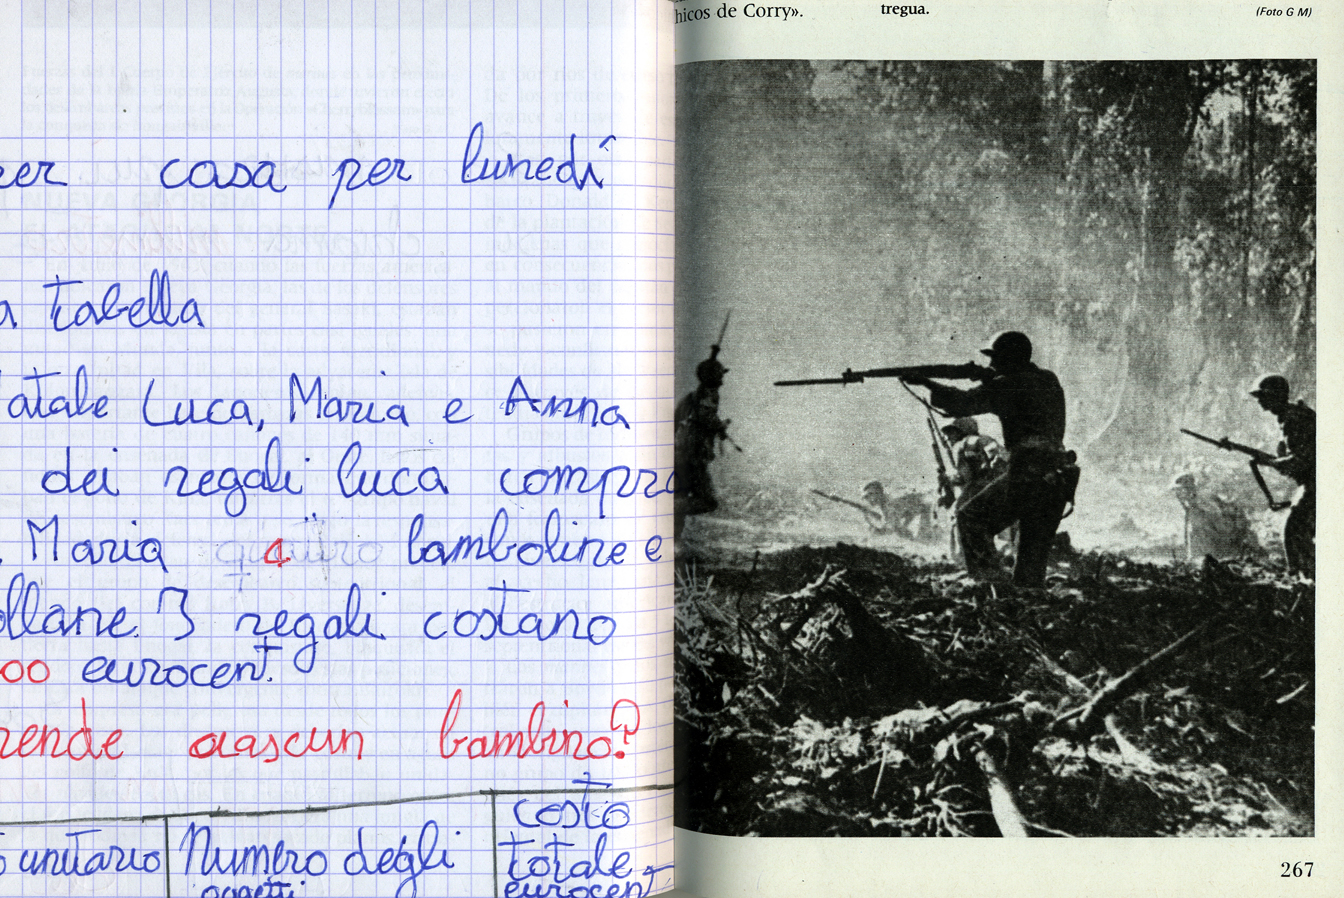 hicos de Corry».
tregua.
(Foto G M)
per casa per lunedí
a tabella
atale Luca, Maria e Anna
dei regali luca compra
. Maria 4 bamboline e
ollane. 3 regali costano
00 eurocent.
rende ciascun bambino?
o unitario
Numero degli
oggetti
costo
totale
eurocent
267